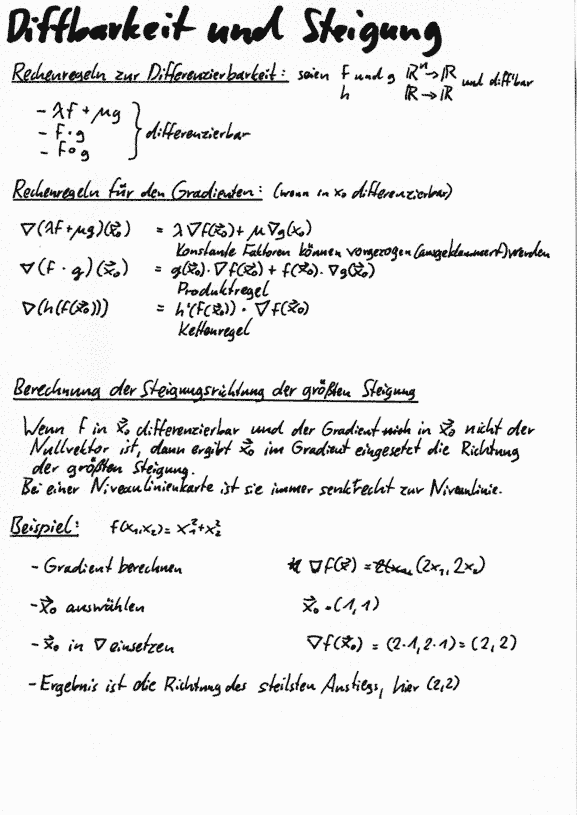 Diffbarkeit und Steigung
Rechenregeln zur Differenzierbarkeit: seien f und g ℝⁿ→ℝ und diff'bar
h ℝ→ℝ
- λf + μg
- f · g } differenzierbar
- f ∘ g
Rechenregeln für den Gradienten: (wenn in x₀ differenzierbar)
∇(λf + μg)(x⃗₀) = λ∇f(x⃗₀) + μ∇g(x₀)
Konstante Faktoren können vorgezogen (ausgeklammert) werden
∇(f · g)(x⃗₀) = g(x⃗₀)·∇f(x⃗₀) + f(x⃗₀)·∇g(x⃗₀)
Produktregel
∇(h(f(x⃗₀))) = h'(f(x⃗₀)) · ∇f(x⃗₀)
Kettenregel
Berechnung der Steigungsrichtung der größten Steigung
Wenn f in x⃗₀ differenzierbar und der Gradient in x⃗₀ nicht der
Nullvektor ist, dann ergibt x⃗₀ im Gradient eingesetzt die Richtung
der größten Steigung.
Bei einer Niveaulinienkarte ist sie immer senkrecht zur Niveaulinie.
Beispiel: f(x₁,x₂) = x₁²+x₂²
- Gradient berechnen ∇f(x⃗) = (2x₁, 2x₂)
- x⃗₀ auswählen x⃗₀ = (1,1)
- x⃗₀ in ∇ einsetzen ∇f(x⃗₀) = (2·1, 2·1) = (2,2)
- Ergebnis ist die Richtung des steilsten Anstiegs, hier (2,2)